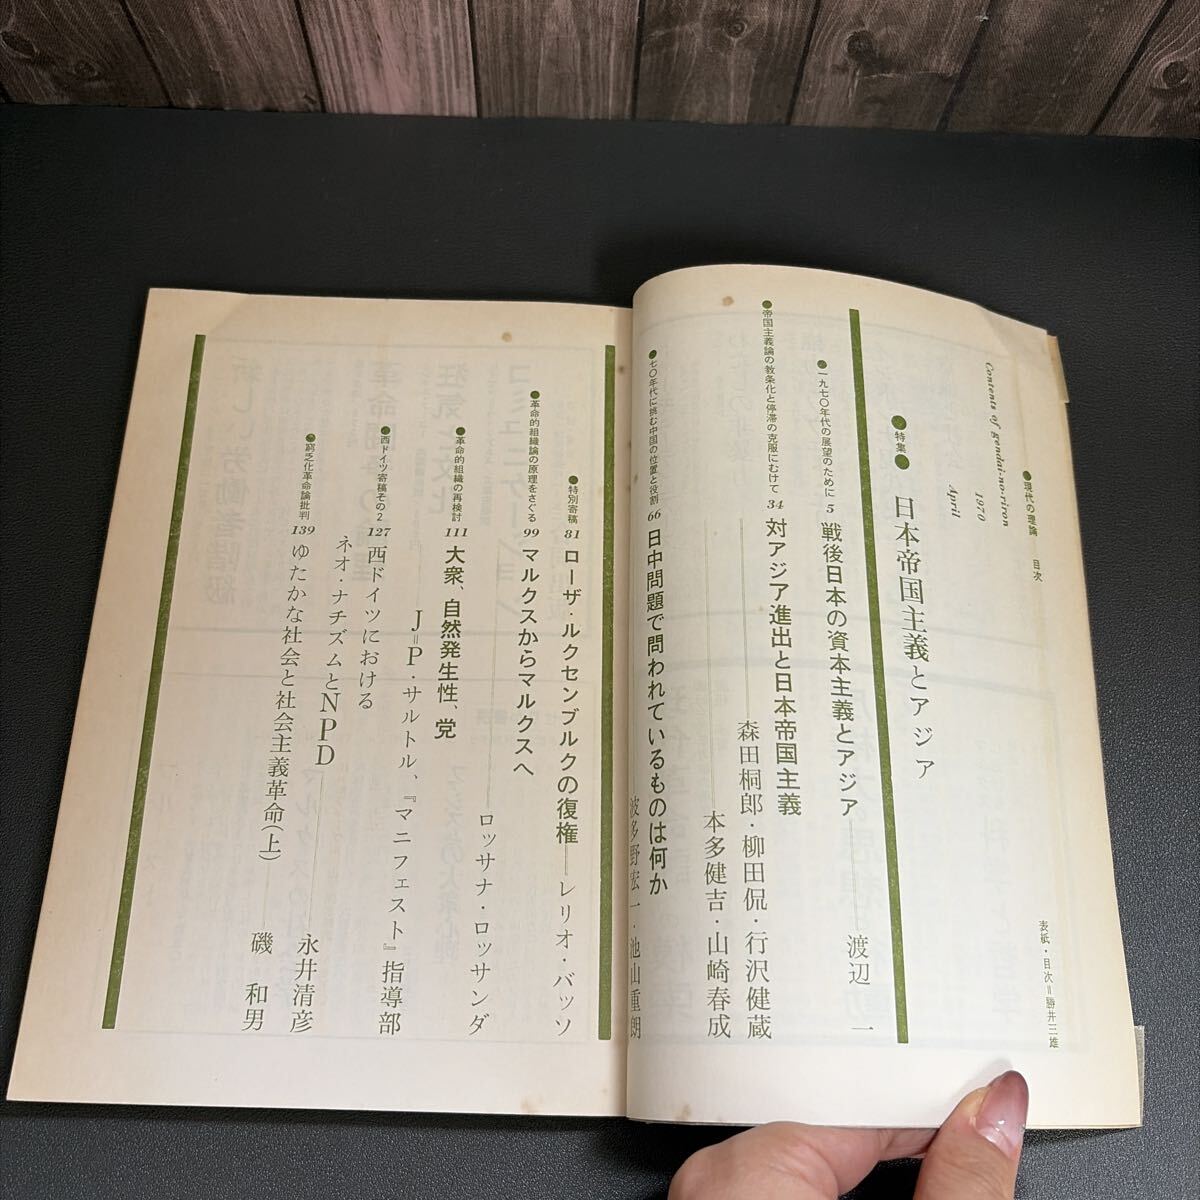 ●現代の理論 目次
Contents of gendai-no-riron
1970
April
表紙・目次＝勝井三雄
●特集● 日本帝国主義とアジア
●一九七〇年代の展望のために 5 戦後日本の資本主義とアジア——渡辺 一
●帝国主義論の教条化と停滞の克服にむけて 34 対アジア進出と日本帝国主義
——森田桐郎・柳田侃・行沢健蔵
——本多健吉・山崎春成
●七〇年代に挑む中国の位置と役割 66 日中問題で問われているものは何か
——波多野宏一・池山重朗
●特別寄稿 81 ローザ・ルクセンブルクの復権——レリオ・バッソ
●革命的組織論の原理をさぐる 99 マルクスからマルクスへ
——ロッサナ・ロッサンダ
●革命的組織の再検討 111 大衆、自然発生性、党
——J＝P・サルトル、『マニフェスト』指導部
●西ドイツ寄稿その2 127 西ドイツにおける
ネオ・ナチズムとNPD——永井清彦
●窮乏化革命論批判 139 ゆたかな社会と社会主義革命(上)——磯 和男